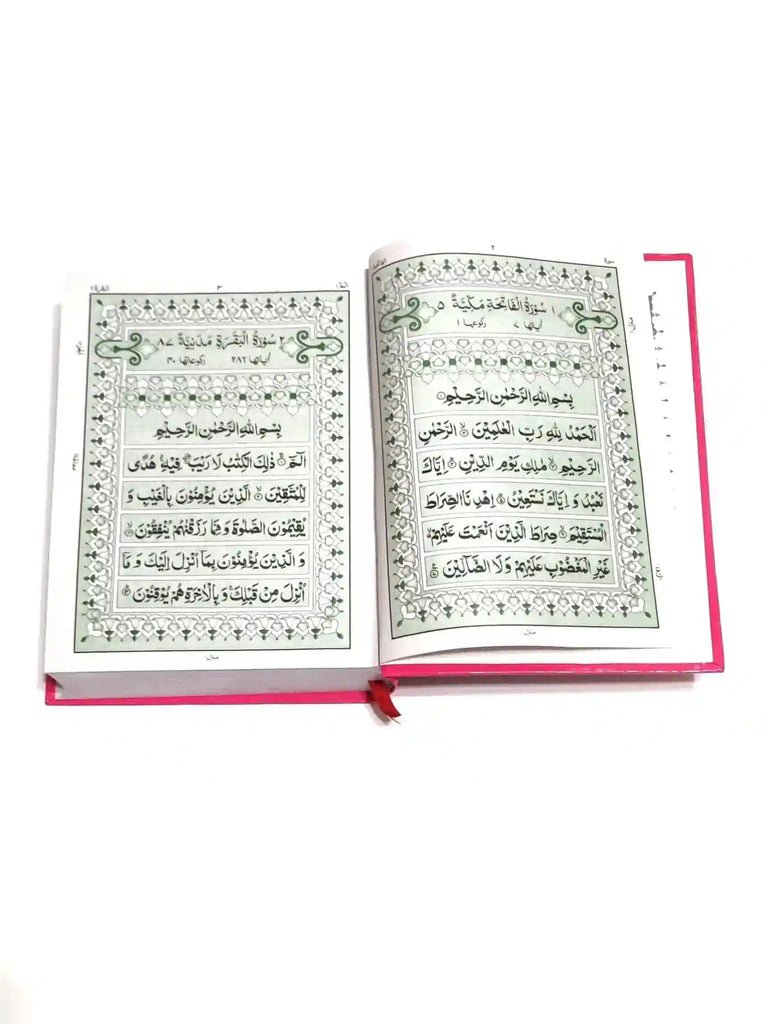 ٢
١ سُوْرَةُ الْفَاتِحَةِ مَكِّيَّةٌ ٥
اٰیاتها ٧ رکوعها ١
بِسْمِ اللهِ الرَّحْمٰنِ الرَّحِيْمِ ①
اَلْحَمْدُ لِلّٰهِ رَبِّ الْعٰلَمِيْنَ ۙ② الرَّحْمٰنِ
الرَّحِيْمِ ۙ③ مٰلِكِ يَوْمِ الدِّيْنِ ④ اِيَّاكَ
نَعْبُدُ وَ اِيَّاكَ نَسْتَعِيْنُ ⑤ اِهْدِ نَا الصِّرَاطَ
الْمُسْتَقِيْمَ ⑥ صِرَاطَ الَّذِيْنَ اَنْعَمْتَ عَلَيْهِمْ ۙ
غَيْرِ الْمَغْضُوْبِ عَلَيْهِمْ وَ لَا الضَّآلِّيْنَ ⑦
منزل ١
٣
٢ سُوْرَةُ الْبَقَرَةِ مَدَنِيَّةٌ ٨٧
اٰیاتها ٢٨٦ رکوعاتها ٤٠
بِسْمِ اللهِ الرَّحْمٰنِ الرَّحِيْمِ
الٓمّٓ ① ذٰلِكَ الْكِتٰبُ لَا رَيْبَ ۛ فِيْهِ ۛ هُدًى
لِّلْمُتَّقِيْنَ ② الَّذِيْنَ يُؤْمِنُوْنَ بِالْغَيْبِ وَ
يُقِيْمُوْنَ الصَّلٰوةَ وَ مِمَّا رَزَقْنٰهُمْ يُنْفِقُوْنَ ③
وَ الَّذِيْنَ يُؤْمِنُوْنَ بِمَاۤ اُنْزِلَ اِلَيْكَ وَ مَاۤ
اُنْزِلَ مِنْ قَبْلِكَ ۚ وَ بِالْاٰخِرَةِ هُمْ يُوْقِنُوْنَ ④
منزل ١